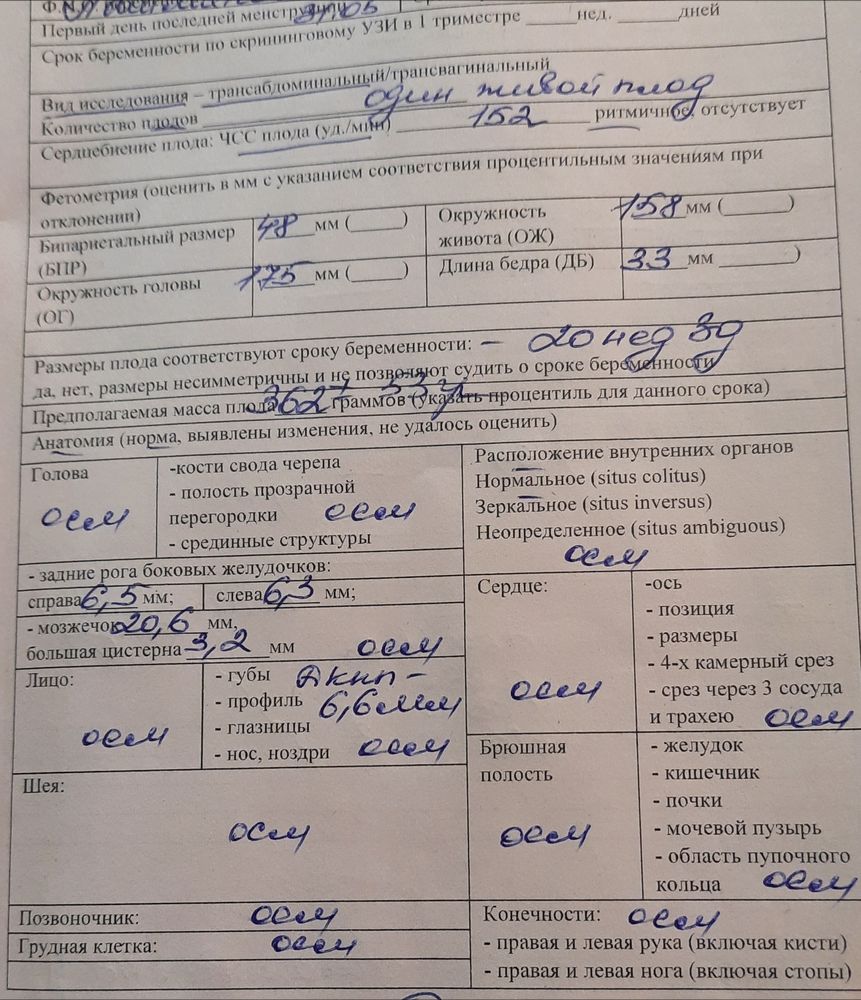 Первый день последней менструации 31.05
Срок беременности по скрининговому УЗИ в 1 триместре ____нед. ____дней
Вид исследования – трансабдоминальный/трансвагинальный
Количество плодов один живой плод
Сердцебиение плода: ЧСС плода (уд./мин) 152 ритмичное, отсутствует
Фетометрия (оценить в мм с указанием соответствия процентильным значениям при
отклонении)
Бипариетальный размер (БПР) 48 мм (_____) Окружность живота (ОЖ) 158 мм (______)
Окружность головы (ОГ) 175 мм (_____) Длина бедра (ДБ) 33 мм ______)
Размеры плода соответствуют сроку беременности: – 20 нед 3д
да, нет, размеры несимметричны и не позволяют судить о сроке беременности
Предполагаемая масса плода 362 граммов (указать процентиль для данного срока)
Анатомия (норма, выявлены изменения, не удалось оценить)
Голова
осм
-кости свода черепа
- полость прозрачной
перегородки осм
- срединные структуры
Расположение внутренних органов
Нормальное (situs colitus)
Зеркальное (situs inversus)
Неопределенное (situs ambiguous)
осм
- задние рога боковых желудочков:
справа 6,5 мм; слева 6,3 мм;
- мозжечок 20,6 мм,
большая цистерна 3,2 мм осм
Сердце:
осм
-ось
- позиция
- размеры
- 4-х камерный срез
- срез через 3 сосуда
и трахею осм
Лицо:
осм
- губы Дкнп –
- профиль 6,6мм
- глазницы
- нос, ноздри осм
Брюшная
полость
осм
- желудок
- кишечник
- почки
- мочевой пузырь
- область пупочного
кольца осм
Шея:
осм
Позвоночник: осм
Грудная клетка: осм
Конечности: осм
- правая и левая рука (включая кисти)
- правая и левая нога (включая стопы)